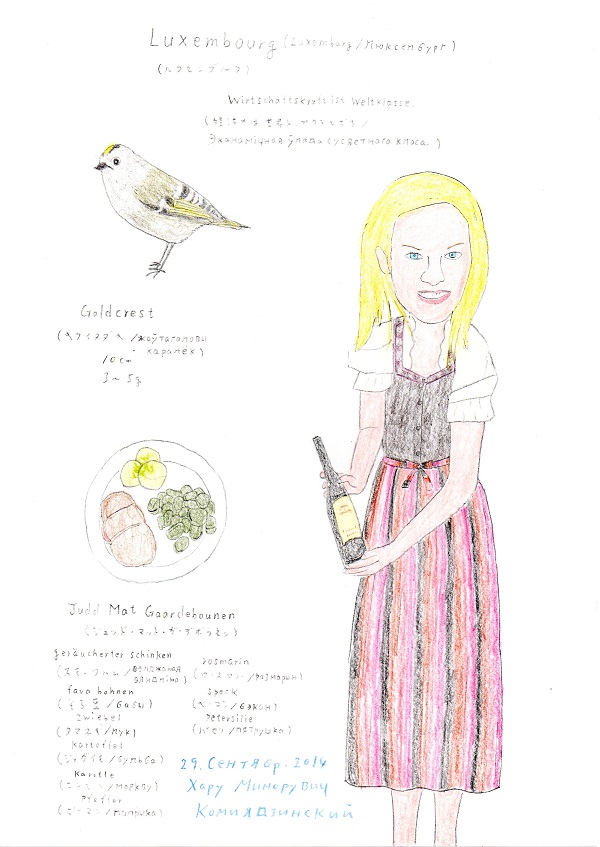 Luxembourg (Luxemburg / Люксембург)
(ルクセンブルク)
Wirtschaftskraft ist Weltklasse.
Эканамічная ўлада сусветнага класа. )
Goldcrest
(キクイタダキ /жоўтагаловы
каралёк)
10cm
3~5g
Judd Mat Gaardebounen
geräucherter schinken
(スモークハム / вэнджаная
вяндліна)
fava bohnen
(そら豆 / бабы)
Zwiebel
(タマネギ / лук)
Kartoffel
(ジャガイモ / бульба)
Karotte
(ニンジン / моркву)
Pfeffer
(ピーマン / паприка)
rosmarin
(ローズマリー / размарын)
speck
(ベーコン / бэкон)
Petersilie
(パセリ / пятрушка)
29. Сентябр. 2014
Хару Минорувич
Комиядзинский